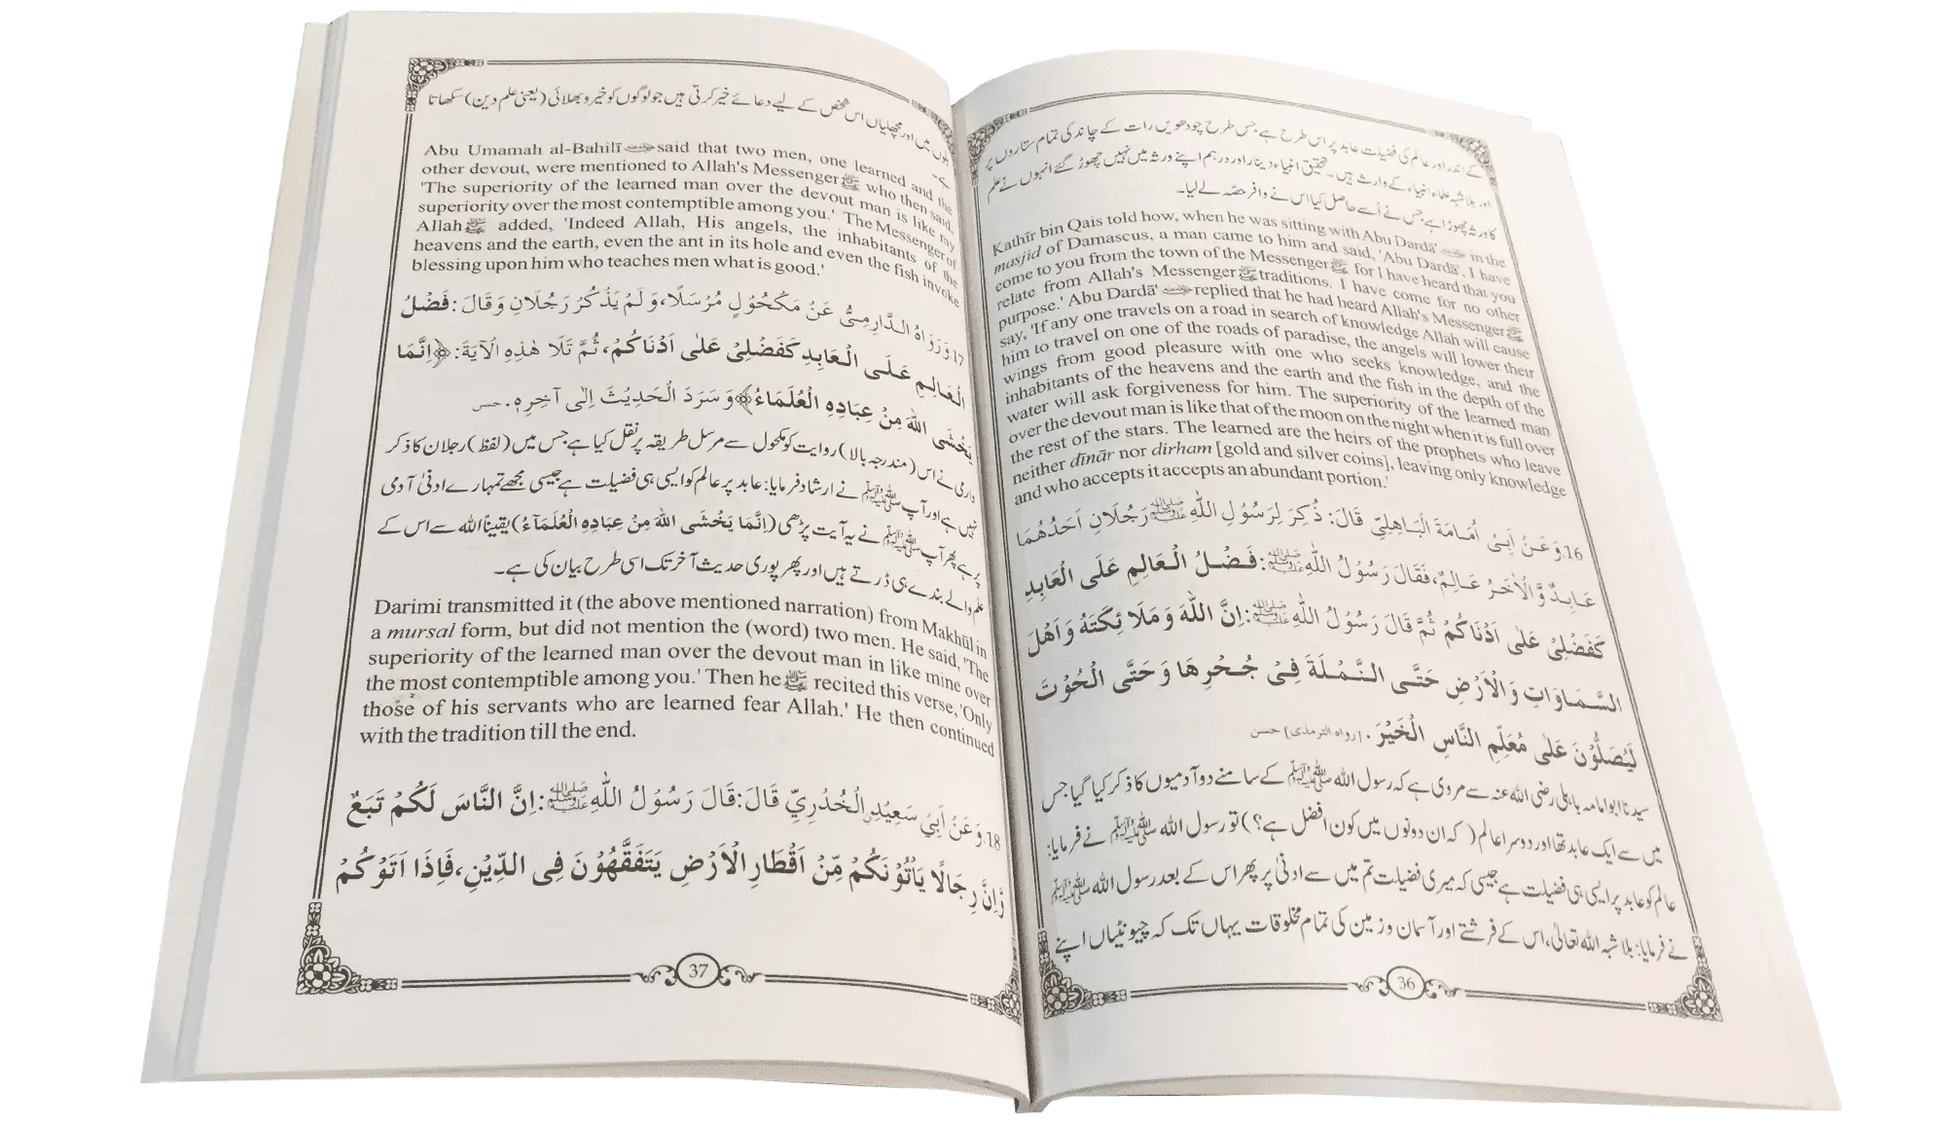 کے اندر اور عالم کی فضیلت عابد پر اس طرح ہے جس طرح چودھویں رات کے چاند کی تمام ستاروں پر
اور بلاشبہ علماء انبیاء کے وارث ہیں۔ تحقیق انبیاء دینار اور درہم اپنے ورثہ میں نہیں چھوڑ گئے انہوں نے علم
کا ورثہ چھوڑا ہے جس نے اُسے حاصل کیا اس نے وافر حصّہ لے لیا۔
Kathīr bin Qais told how, when he was sitting with Abu Dardā' in the
masjid of Damascus, a man came to him and said, 'Abu Dardā', I have
come to you from the town of the Messenger ﷺ for I have heard that you
relate from Allah's Messenger ﷺ traditions. I have come for no other
purpose.' Abu Dardā' replied that he had heard Allah's Messenger ﷺ
say, 'If any one travels on a road in search of knowledge Allah will cause
him to travel on one of the roads of paradise, the angels will lower their
wings from good pleasure with one who seeks knowledge, and the
inhabitants of the heavens and the earth and the fish in the depth of the
water will ask forgiveness for him. The superiority of the learned man
over the devout man is like that of the moon on the night when it is full over
the rest of the stars. The learned are the heirs of the prophets who leave
neither dīnār nor dirham [gold and silver coins], leaving only knowledge
and who accepts it accepts an abundant portion.'
16. وَعَنْ اَبِىْ اُمَامَةَ الْبَاهِلِيِّ قَالَ: ذُكِرَ لِرَسُوْلِ اللّٰهِ ﷺ رَجُلَانِ اَحَدُهُمَا
عَابِدٌ وَّالْاٰخَرُ عَالِمٌ، فَقَالَ رَسُوْلُ اللّٰهِ ﷺ: فَضْلُ الْعَالِمِ عَلَى الْعَابِدِ
كَفَضْلِىْ عَلٰى اَدْنَاكُمْ ثُمَّ قَالَ رَسُوْلُ اللّٰهِ ﷺ: اِنَّ اللّٰهَ وَمَلَائِكَتَهُ وَاَهْلَ
السَّمَاوَاتِ وَالْاَرْضِ حَتَّى النَّمْلَةَ فِىْ جُحْرِهَا وَحَتَّى الْحُوْتَ
لَيُصَلُّوْنَ عَلٰى مُعَلِّمِ النَّاسِ الْخَيْرَ. [رواه الترمذى] حسن
سیدنا ابوامامہ باہلی رضی اللہ عنہ سے مروی ہے کہ رسول اللہ ﷺ کے سامنے دو آدمیوں کا ذکر کیا گیا جس
میں سے ایک عابد تھا اور دوسرا عالم (کہ ان دونوں میں کون افضل ہے؟) تو رسول اللہ ﷺ نے فرمایا:
عالم کو عابد پر ایسی ہی فضیلت ہے جیسی کہ میری فضیلت تم میں سے ادنیٰ پر پھر اس کے بعد رسول اللہ ﷺ
نے فرمایا: بلاشبہ اللہ تعالیٰ، اس کے فرشتے اور آسمان و زمین کی تمام مخلوقات یہاں تک کہ چیونٹیاں اپنے
36
بلوں میں اور مچھلیاں اس شخص کے لیے دعائے خیر کرتی ہیں جو لوگوں کو خیر و بھلائی (یعنی علم دین) سکھاتا
ہے۔
Abu Umamah al-Bahilī said that two men, one learned and the
other devout, were mentioned to Allah's Messenger ﷺ who then said,
'The superiority of the learned man over the devout man is like my
superiority over the most contemptible among you.' The Messenger of
Allah ﷺ added, 'Indeed Allah, His angels, the inhabitants of the
heavens and the earth, even the ant in its hole and even the fish invoke
blessing upon him who teaches men what is good.'
17. وَرَوَاهُ الدَّارِمِىُّ عَنْ مَكْحُوْلٍ مُرْسَلًا، وَلَمْ يَذْكُرْ رَجُلَانِ وَقَالَ: فَضْلُ
الْعَالِمِ عَلَى الْعَابِدِ كَفَضْلِىْ عَلٰى اَدْنَاكُمْ، ثُمَّ تَلَا هٰذِهِ الْاٰيَةَ: ﴿اِنَّمَا
يَخْشَى اللّٰهَ مِنْ عِبَادِهِ الْعُلَمَاءُ﴾ وَسَرَدَ الْحَدِيْثَ اِلٰى آخِرِهٖ. حسن
دارمی نے اس (مندرجہ بالا) روایت کو مکحول سے مرسل طریقہ پر نقل کیا ہے جس میں (لفظ) رجلان کا ذکر
نہیں ہے اور آپ ﷺ نے ارشاد فرمایا: عابد پر عالم کو ایسی ہی فضیلت ہے جیسی مجھے تمہارے ادنیٰ آدمی
پر ہے پھر آپ ﷺ نے یہ آیت پڑھی (اِنَّمَا يَخْشَى اللّٰهَ مِنْ عِبَادِهِ الْعُلَمَآءُ) یقیناً اللہ سے اس کے
علم والے بندے ہی ڈرتے ہیں اور پھر پوری حدیث آخر تک اسی طرح بیان کی ہے۔
Darimi transmitted it (the above mentioned narration) from Makhūl in
a mursal form, but did not mention the (word) two men. He said, 'The
superiority of the learned man over the devout man in like mine over
the most contemptible among you.' Then he ﷺ recited this verse, 'Only
those of his servants who are learned fear Allah.' He then continued
with the tradition till the end.
18. وَعَنْ اَبِيْ سَعِيْدِنِ الْخُدْرِيِّ قَالَ: قَالَ رَسُوْلُ اللّٰهِ ﷺ: اِنَّ النَّاسَ لَكُمْ تَبَعٌ
وَّاِنَّ رِجَالًا يَاْتُوْنَكُمْ مِّنْ اَقْطَارِ الْاَرْضِ يَتَفَقَّهُوْنَ فِى الدِّيْنِ، فَاِذَا اَتَوْكُمْ
37